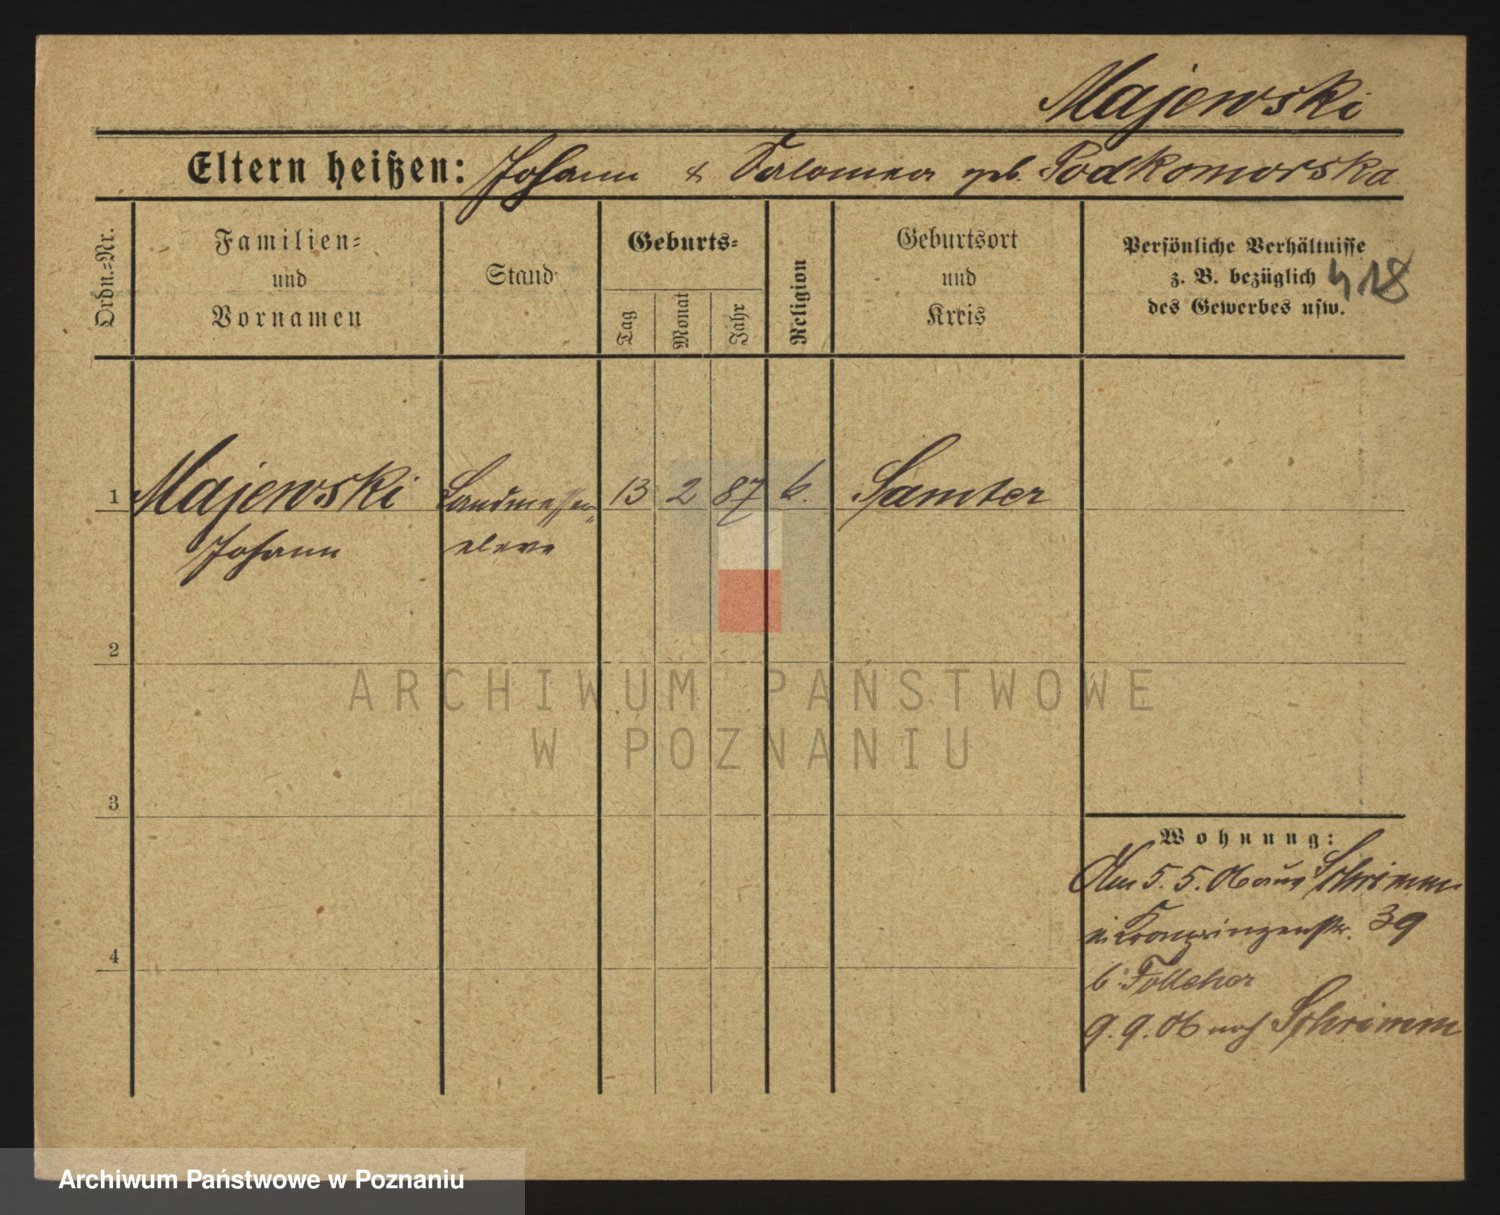 Majewski
Eltern heißen: Johann & Salomea geb. Podkomorska
Ordn.=Nr.
Familien=
und
Vornamen
Stand
Geburts=
Tag
Monat
Jahr
Religion
Geburtsort
und
Kreis
Persönliche Verhältnisse
z. B. bezüglich
des Gewerbes usw.
418
1 Majewski Landmesser= 13 2 87 k. Samter
Johann eleve
2
3
4
Wohnung:
Am 5.5.06 aus Schrimm
Kronprinzenstr. 39
b.
9.9.06 nach Schrimm
ARCHIWUM PAŃSTWOWE
W POZNANIU
Archiwum Państwowe w Poznaniu